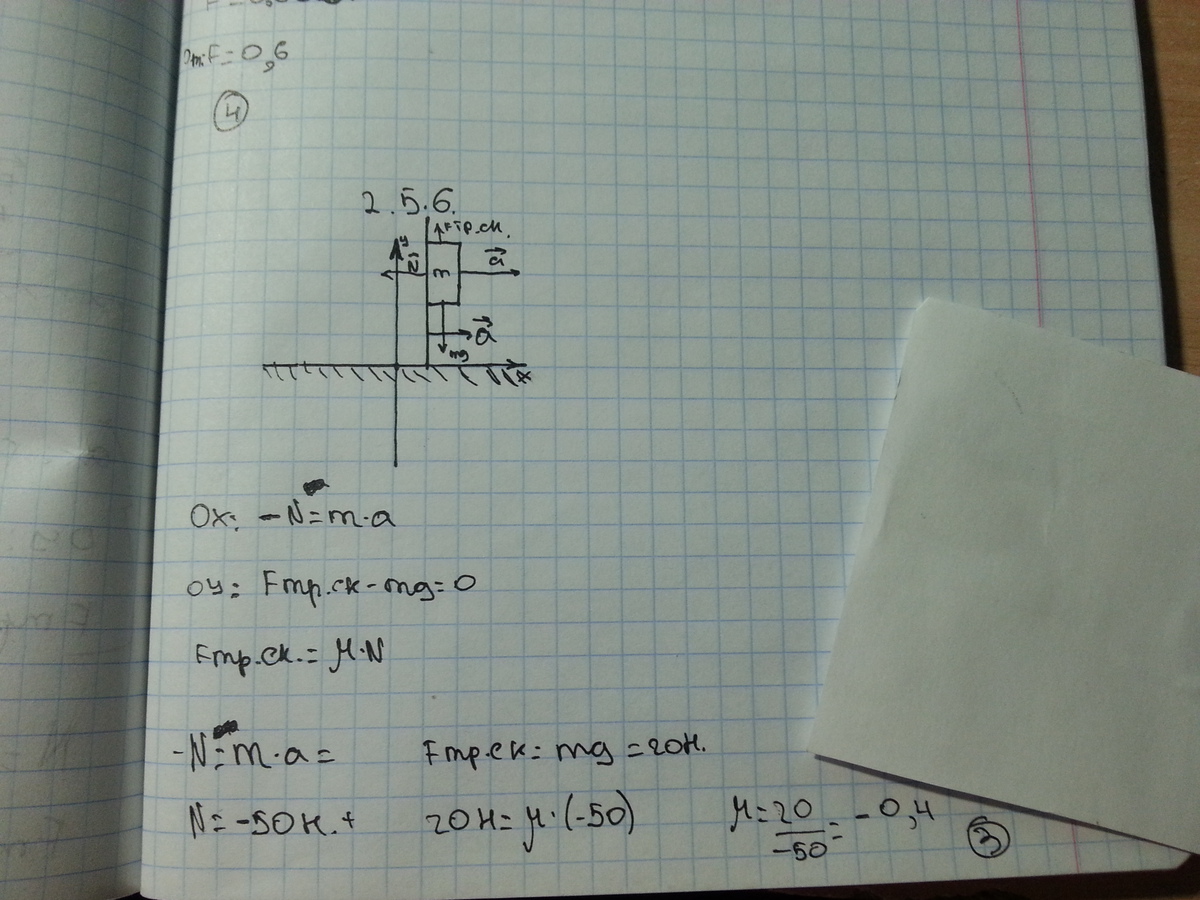 F=0,6
4
2.5.6.
Fтр.ск.
y
N
m
a
a
mg
x
Ox: -N=m·a
oy: Fтр.ск-mg=0
Fтр.ск.= μ·N
-N=m·a= Fтр.ск= mg =20н.
N=-50н.+ 20н=μ·(-50) μ=20/-50=-0,4
3